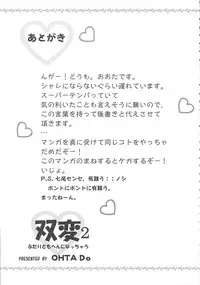 あとがき
んがー！どうも。おおたです。
シャレにならないぐらい遅れています。
スーパーテンパっていて
気の利いたことも言えそうに無いので、
この言葉を持って後書きとさせて
頂きます。
マンガを真に受けて同じコトをやっちゃ
だめだぞー！
このマンガのまねするとケガするぞー！
いじょ。
P.S. 七尾センセ、有難う：：ノシ
ホントにホントに有難う。
まったねーん。
双変2
ふたりともへんにゆっちゃう
PRESENTED BY OHTA Do